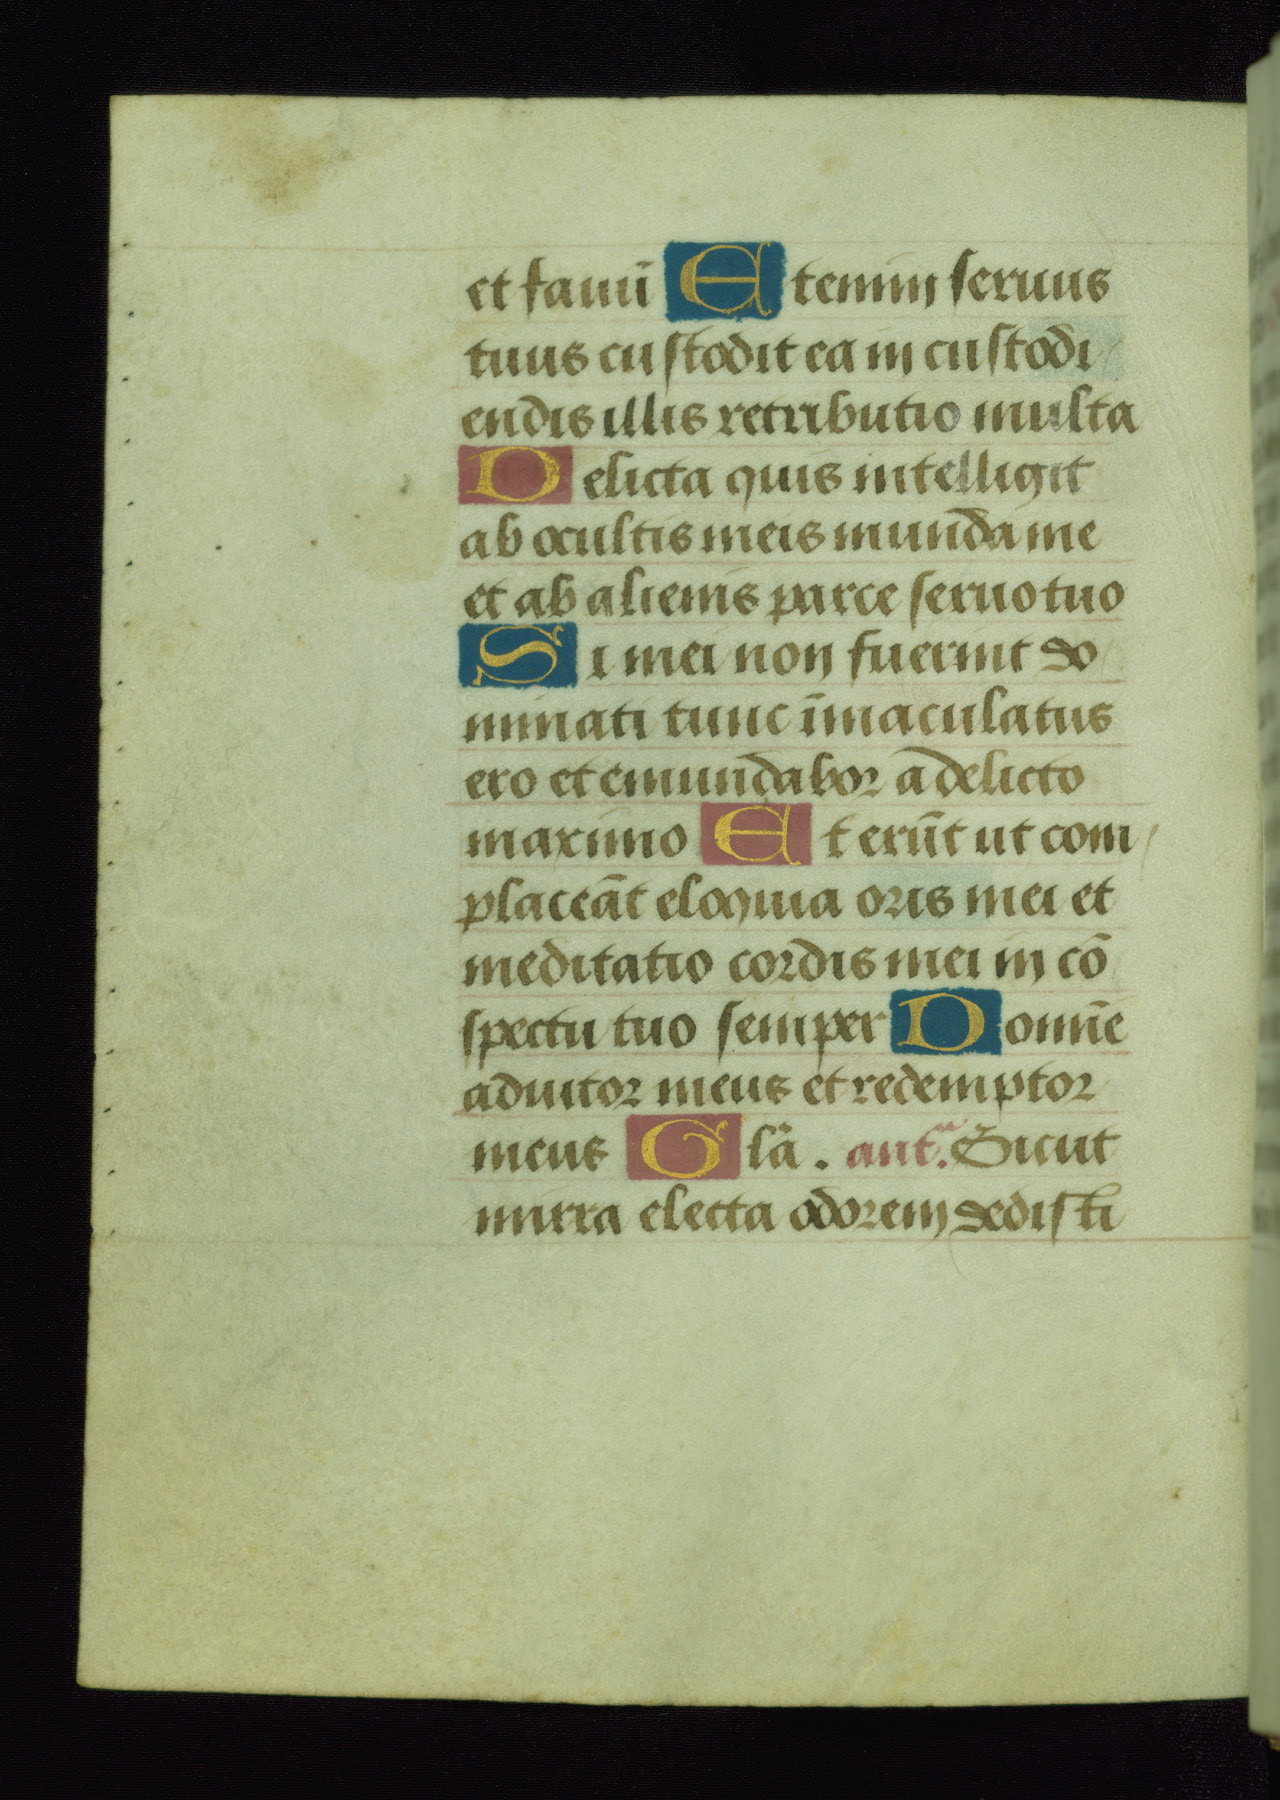 et fauū Etenim seruus
tuus custodit ea in custodi
endis illis retributio multa
Delicta quis intelligit
ab ocultis meis munda me
et ab alienis parce seruo tuo
Si mei non fuerint do
minati tunc īmaculatus
ero et emundabor a delicto
maximo Et erūt ut com
placeāt eloquia oris mei et
meditatio cordis mei in cō
spectu tuo semper Domīe
adiutor meus et redemptor
meus Glā. antᵃ. Sicut
mirra electa odorem dedisti